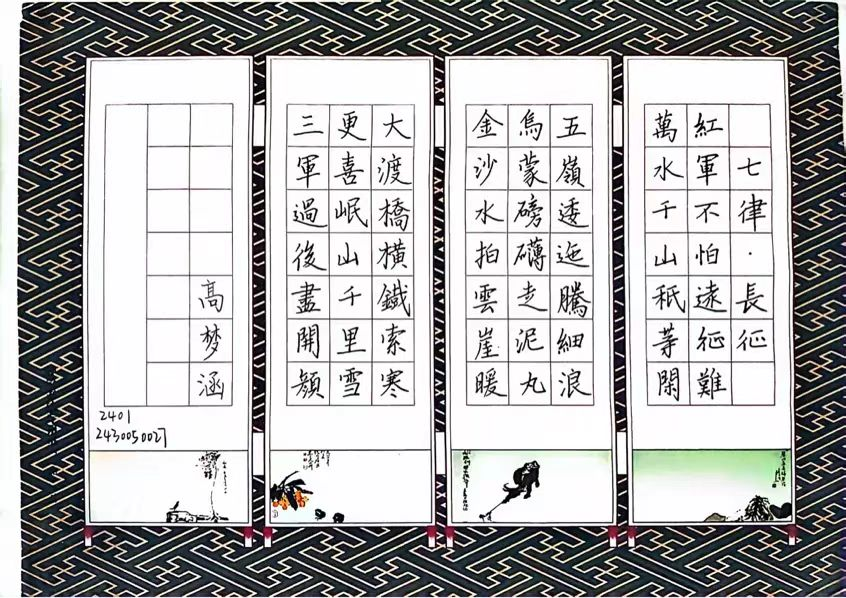 七律·長征
紅軍不怕遠征難
萬水千山秖等閑
五嶺逶迤騰細浪
烏蒙磅礴走泥丸
金沙水拍雲崖暖
大渡橋橫鐵索寒
更喜岷山千里雪
三軍過後盡開顏
高梦涵
2401
2430050027